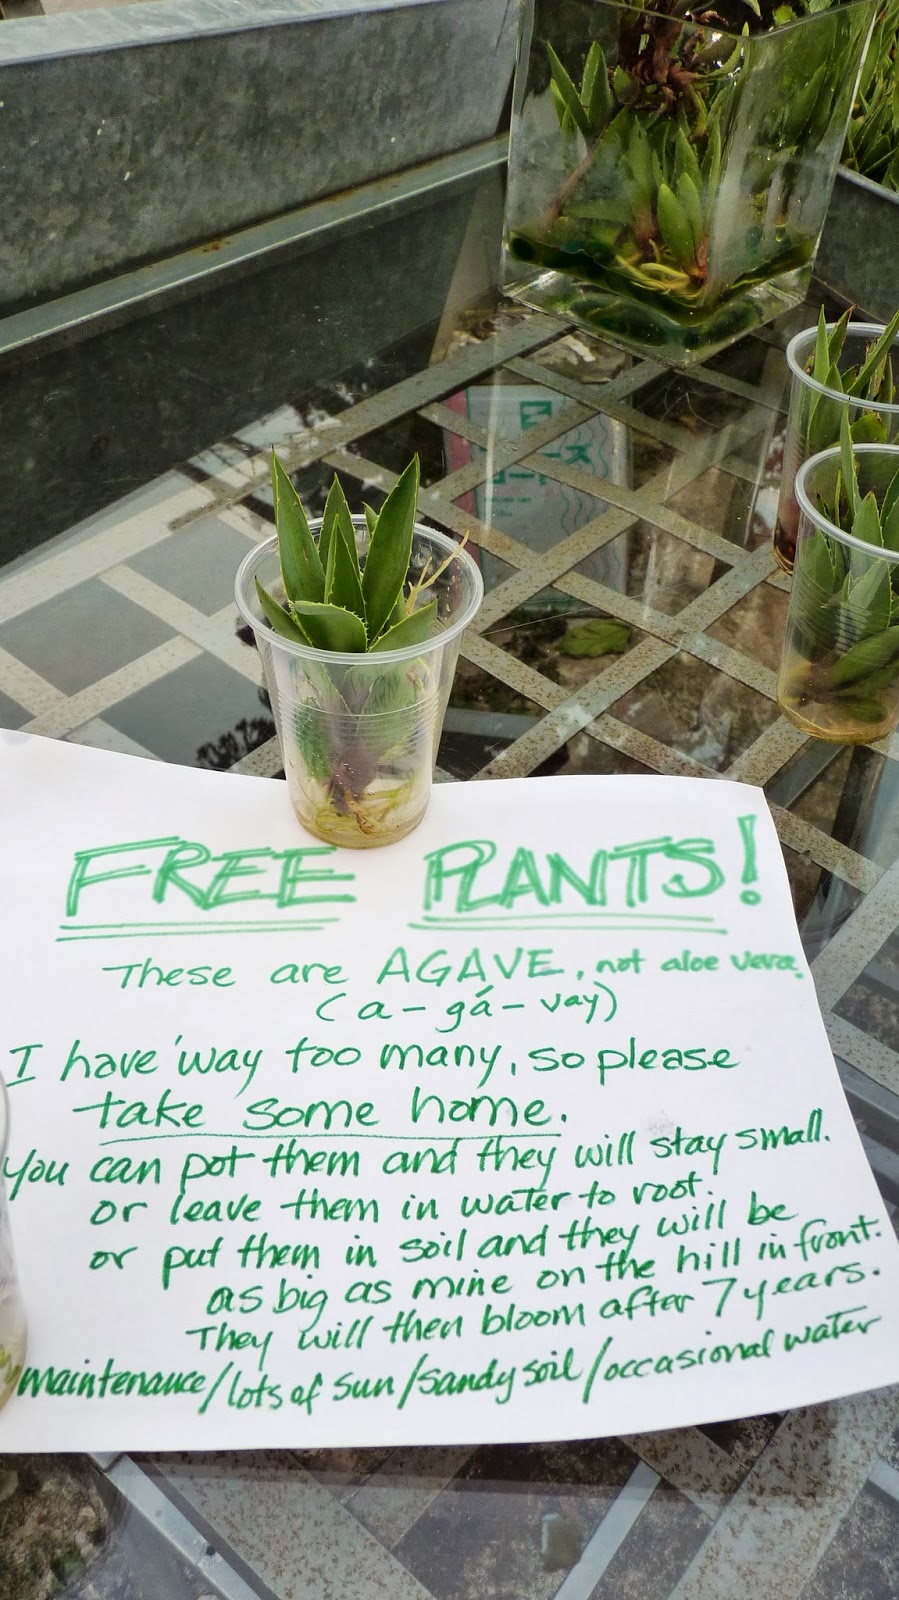 FREE PLANTS!
These are AGAVE, not aloe vera.
(a - gá - vay)
I have way too many, so please
take some home.
You can pot them and they will stay small.
or leave them in water to root.
or put them in soil and they will be
as big as mine on the hill in front.
They will then bloom after 7 years.
maintenance/lots of sun/sandy soil/occasional water